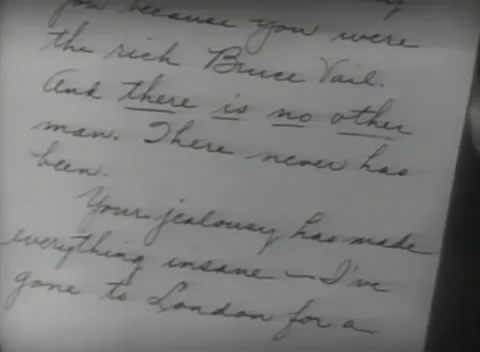 you because you were
the rich Bruce Vail.
And there is no other
man. There never has
been.
Your jealousy has made
everything insane — I've
gone to London for a